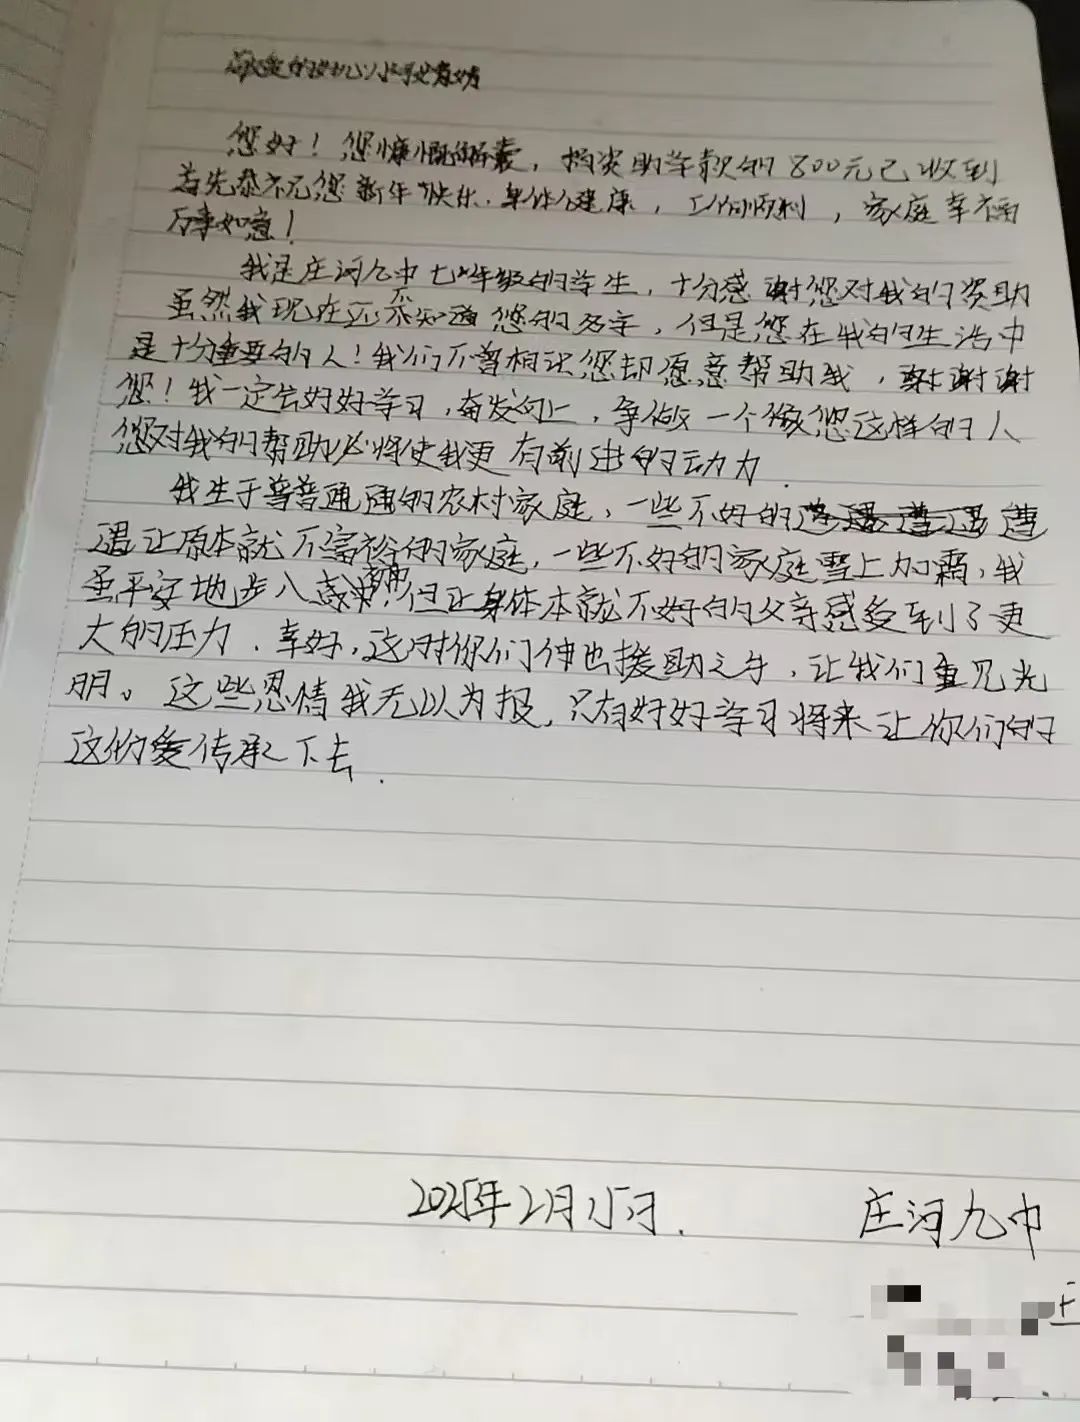 敬爱的
您好！您慷慨解囊，捐资助学款的800元已收到
首先恭祝您新年快乐，身体健康，工作顺利，家庭幸福
万事如意！
我是庄河九中七年级的学生，十分感谢您对我的资助
虽然我现在还不知道您的名字，但是您在我的生活中
是十分重要的人！我们不曾相识您却愿意帮助我，谢谢谢
您！我一定会好好学习，奋发向上，争做一个像您这样的人
您对我的帮助必将使我更有前进的动力.
我生于普普通通的农村家庭，一些不好的遭
遇让原本就不富裕的家庭，一些不好的家庭雪上加霜，我
虽平安地步入，但让身体本就不好的父亲感受到了更
大的压力.幸好，这时你们伸出援助之手，让我们重见光
明。这些恩情我无以为报，只有好好学习将来让你们的
这份爱传承下去.
2025年2月15日.
庄河九中